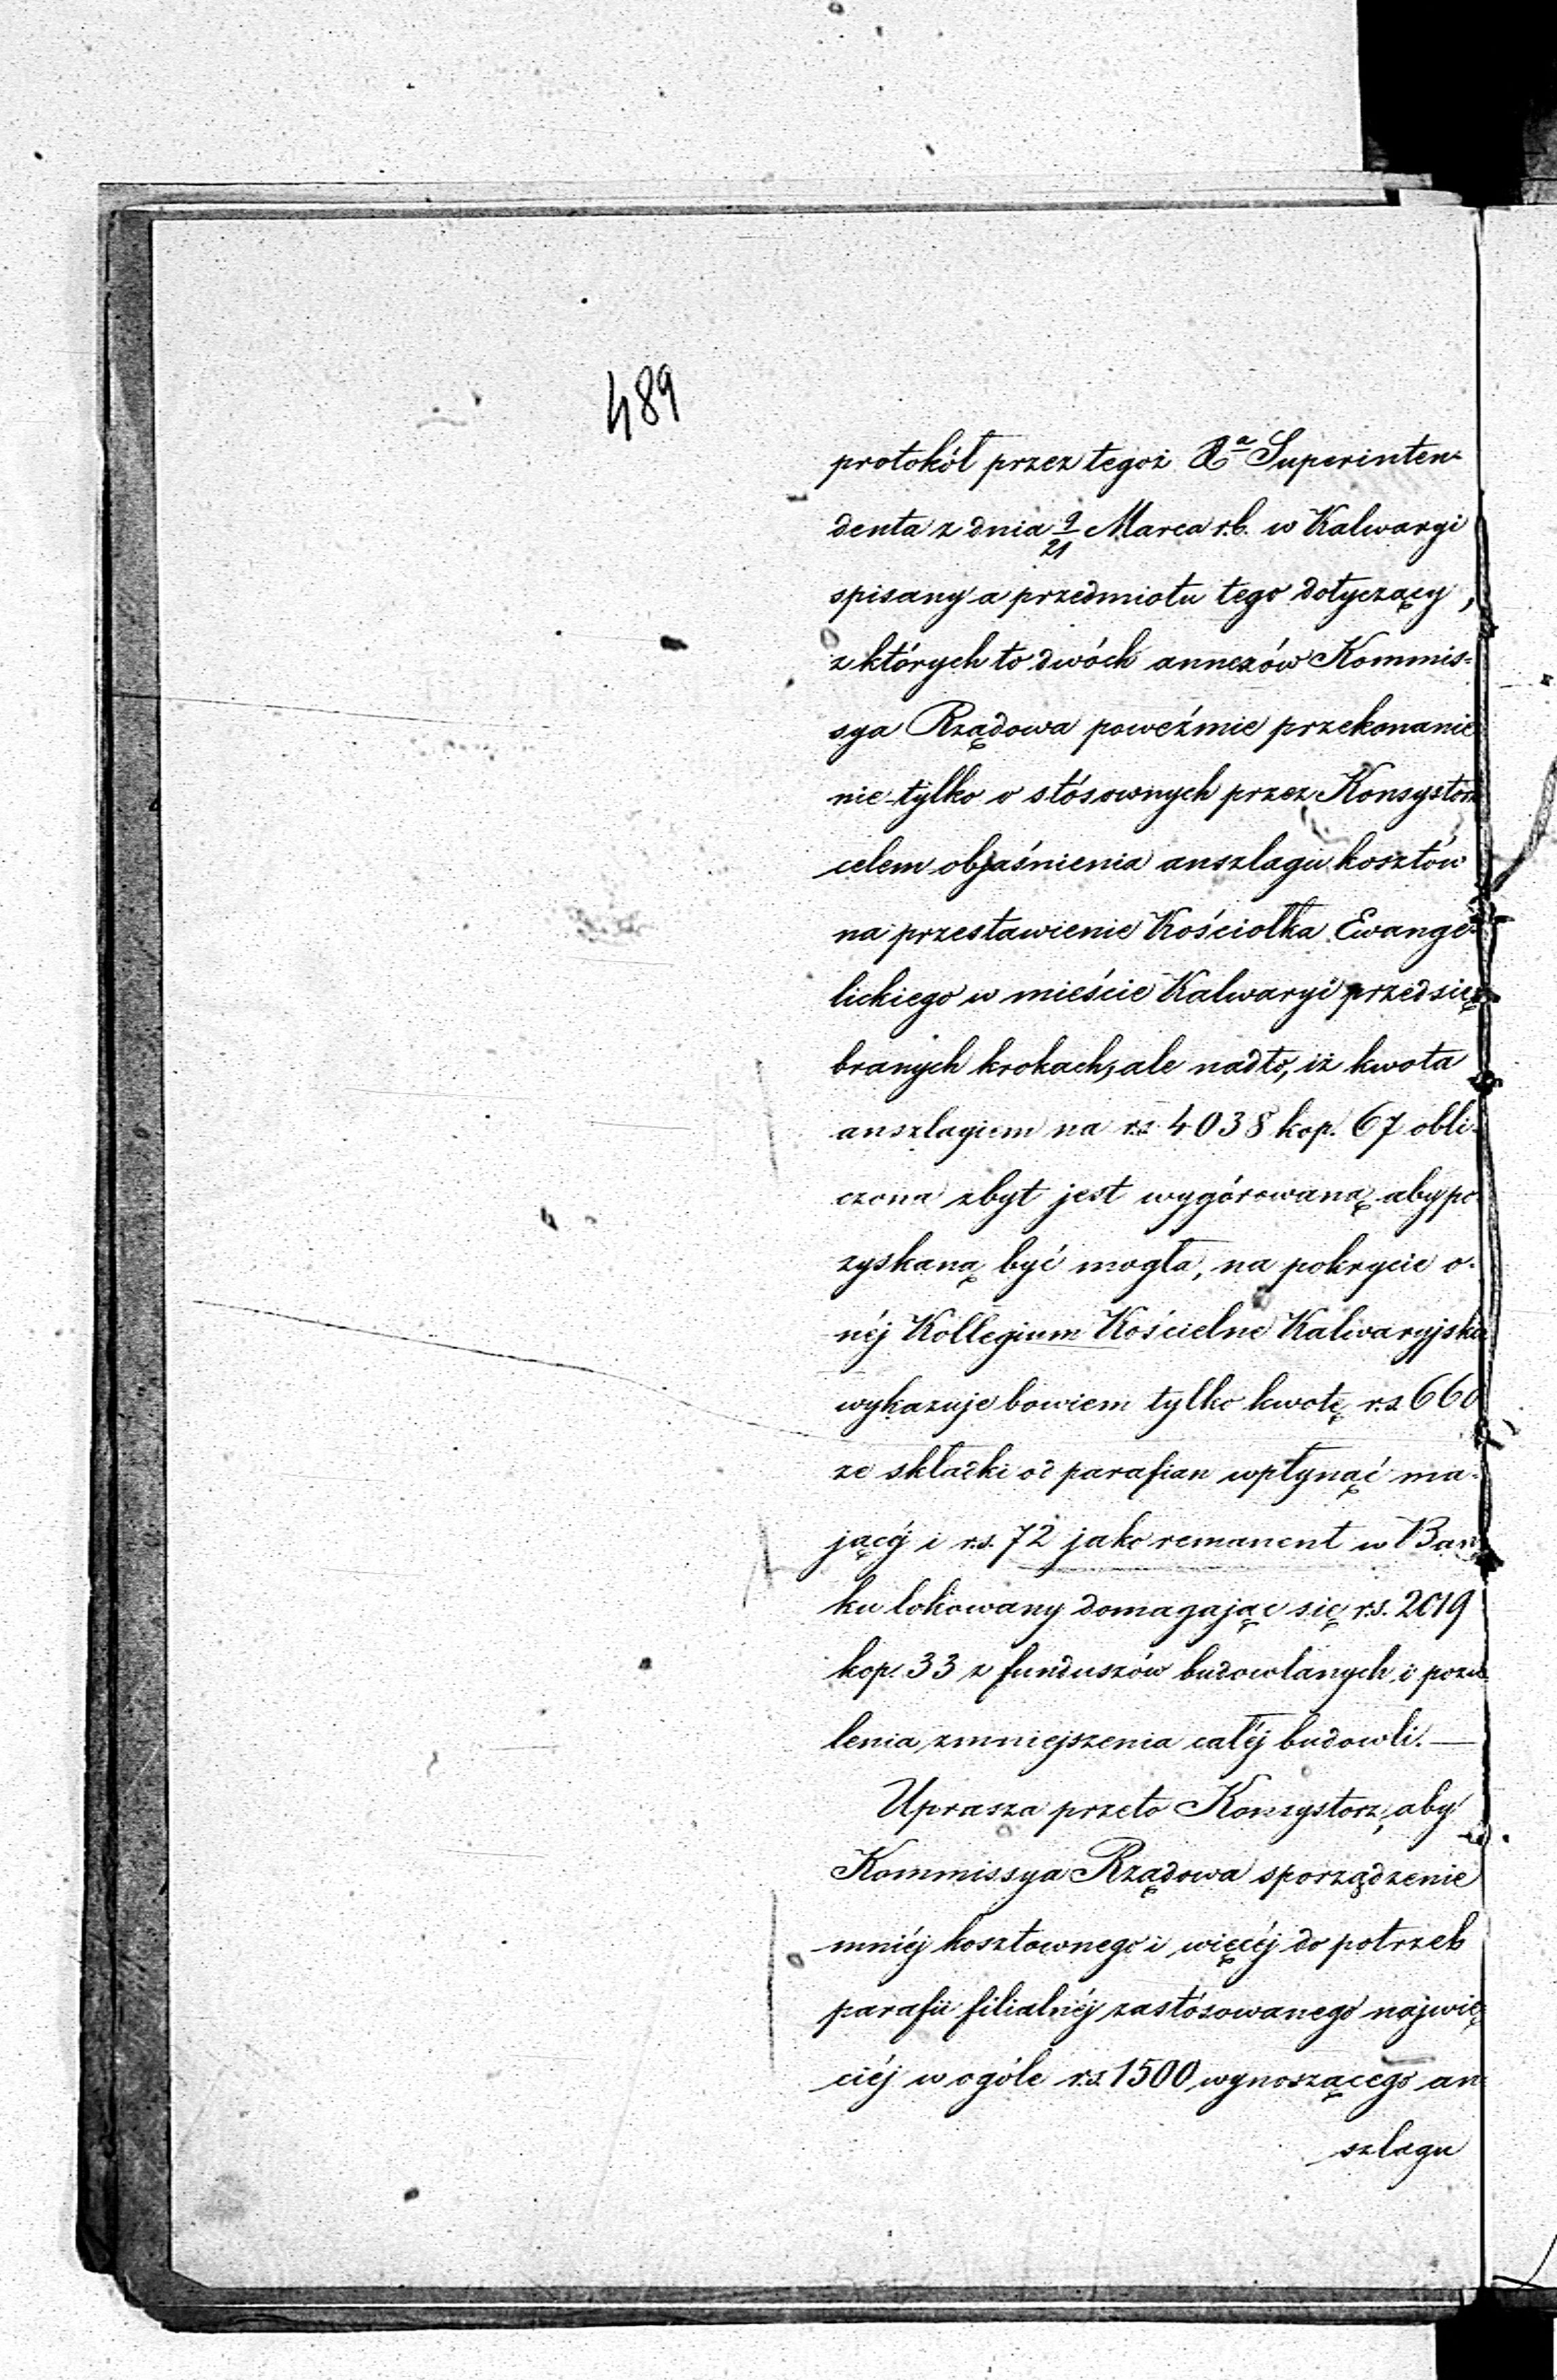 489
protokół przez tegoż Xa Superinten-
denta z dnia 9/21 Marca r.b. w Kalwaryi
spisany a przedmiotu tego dotyczący,
z których to dwóch annexów Kommis-
sya Rządowa poweźmie przekonanie
nie tylko o stósownych przez Konsystorz
celem objaśnienia anszlagu kosztów
na przestawienie Kościołka Ewange-
lickiego w mieście Kalwaryi przedsię-
branych krokach, ale nadto, iż kwota
anszlagiem na rs. 4038 kop. 67 obli-
czona zbyt jest wygórowaną aby po-
zyskaną być mogła, na pokrycie o-
néj Kollegium Kościelne Kalwaryjskie
wykazuje bowiem tylko kwotę r.s. 660
ze składki od parafian wpłynąć ma-
jącéj i r.s. 72 jako remanent w Ban-
ku lokowany domagając się r.s. 2019
kop. 33 z funduszów budowlanych i pozwo
lenia zmniejszenia całéj budowli. —
Uprasza przeto Konsystorz, aby
Kommissya Rządowa sporządzenie
mniéj kosztownego i więcéj do potrzeb
parafii filialnéj zastósowanego najwię-
céj w ogóle r.s. 1500 wynoszącego an-
szlagu